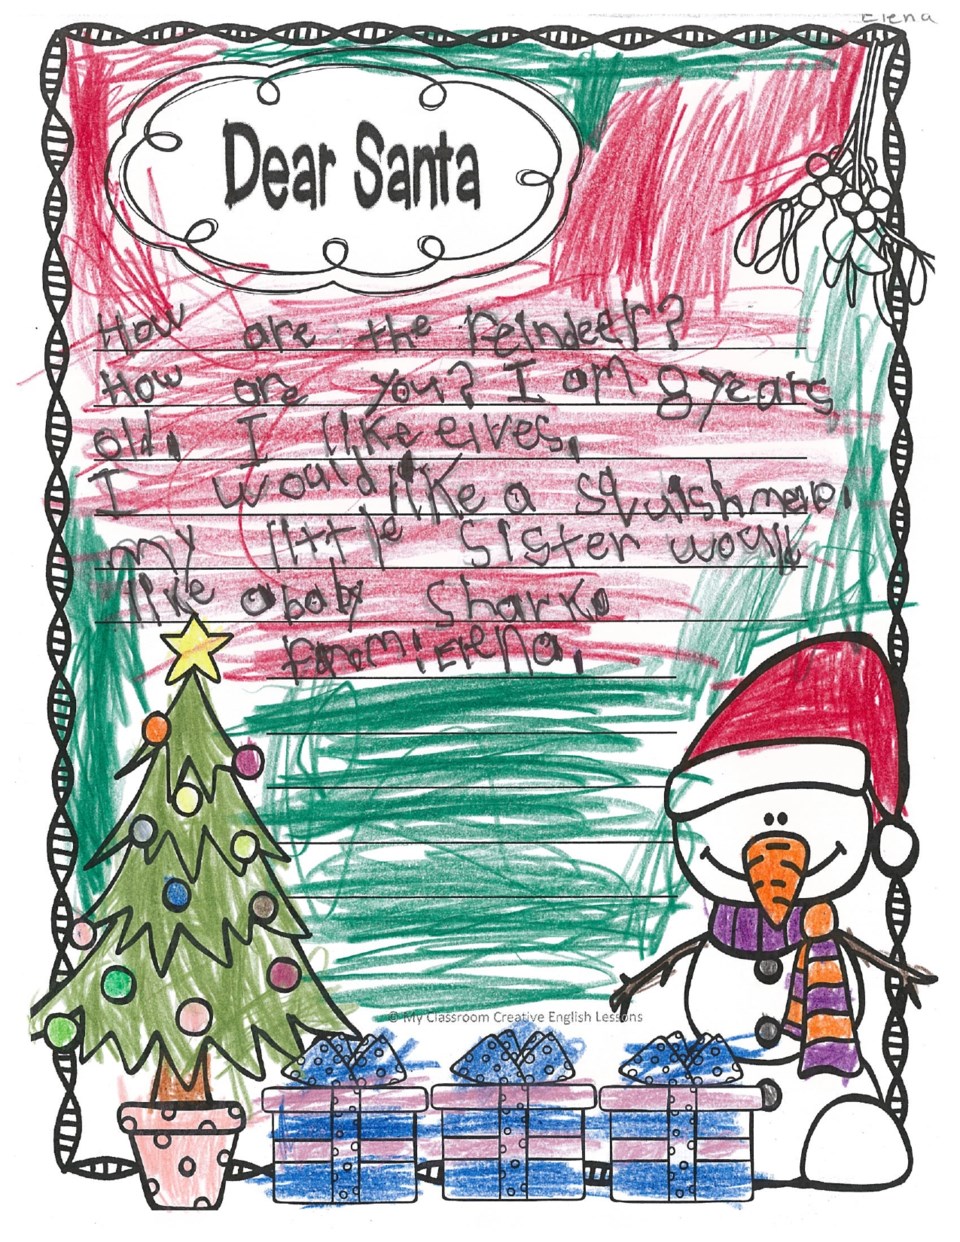 Elena
Dear Santa
How are the reindeer?
How are you? I am 8 years
old. I like elves.
I would like a squishmelo.
my little sister would
like a baby shark.
from: Elena.
© My Classroom Creative English Lessons